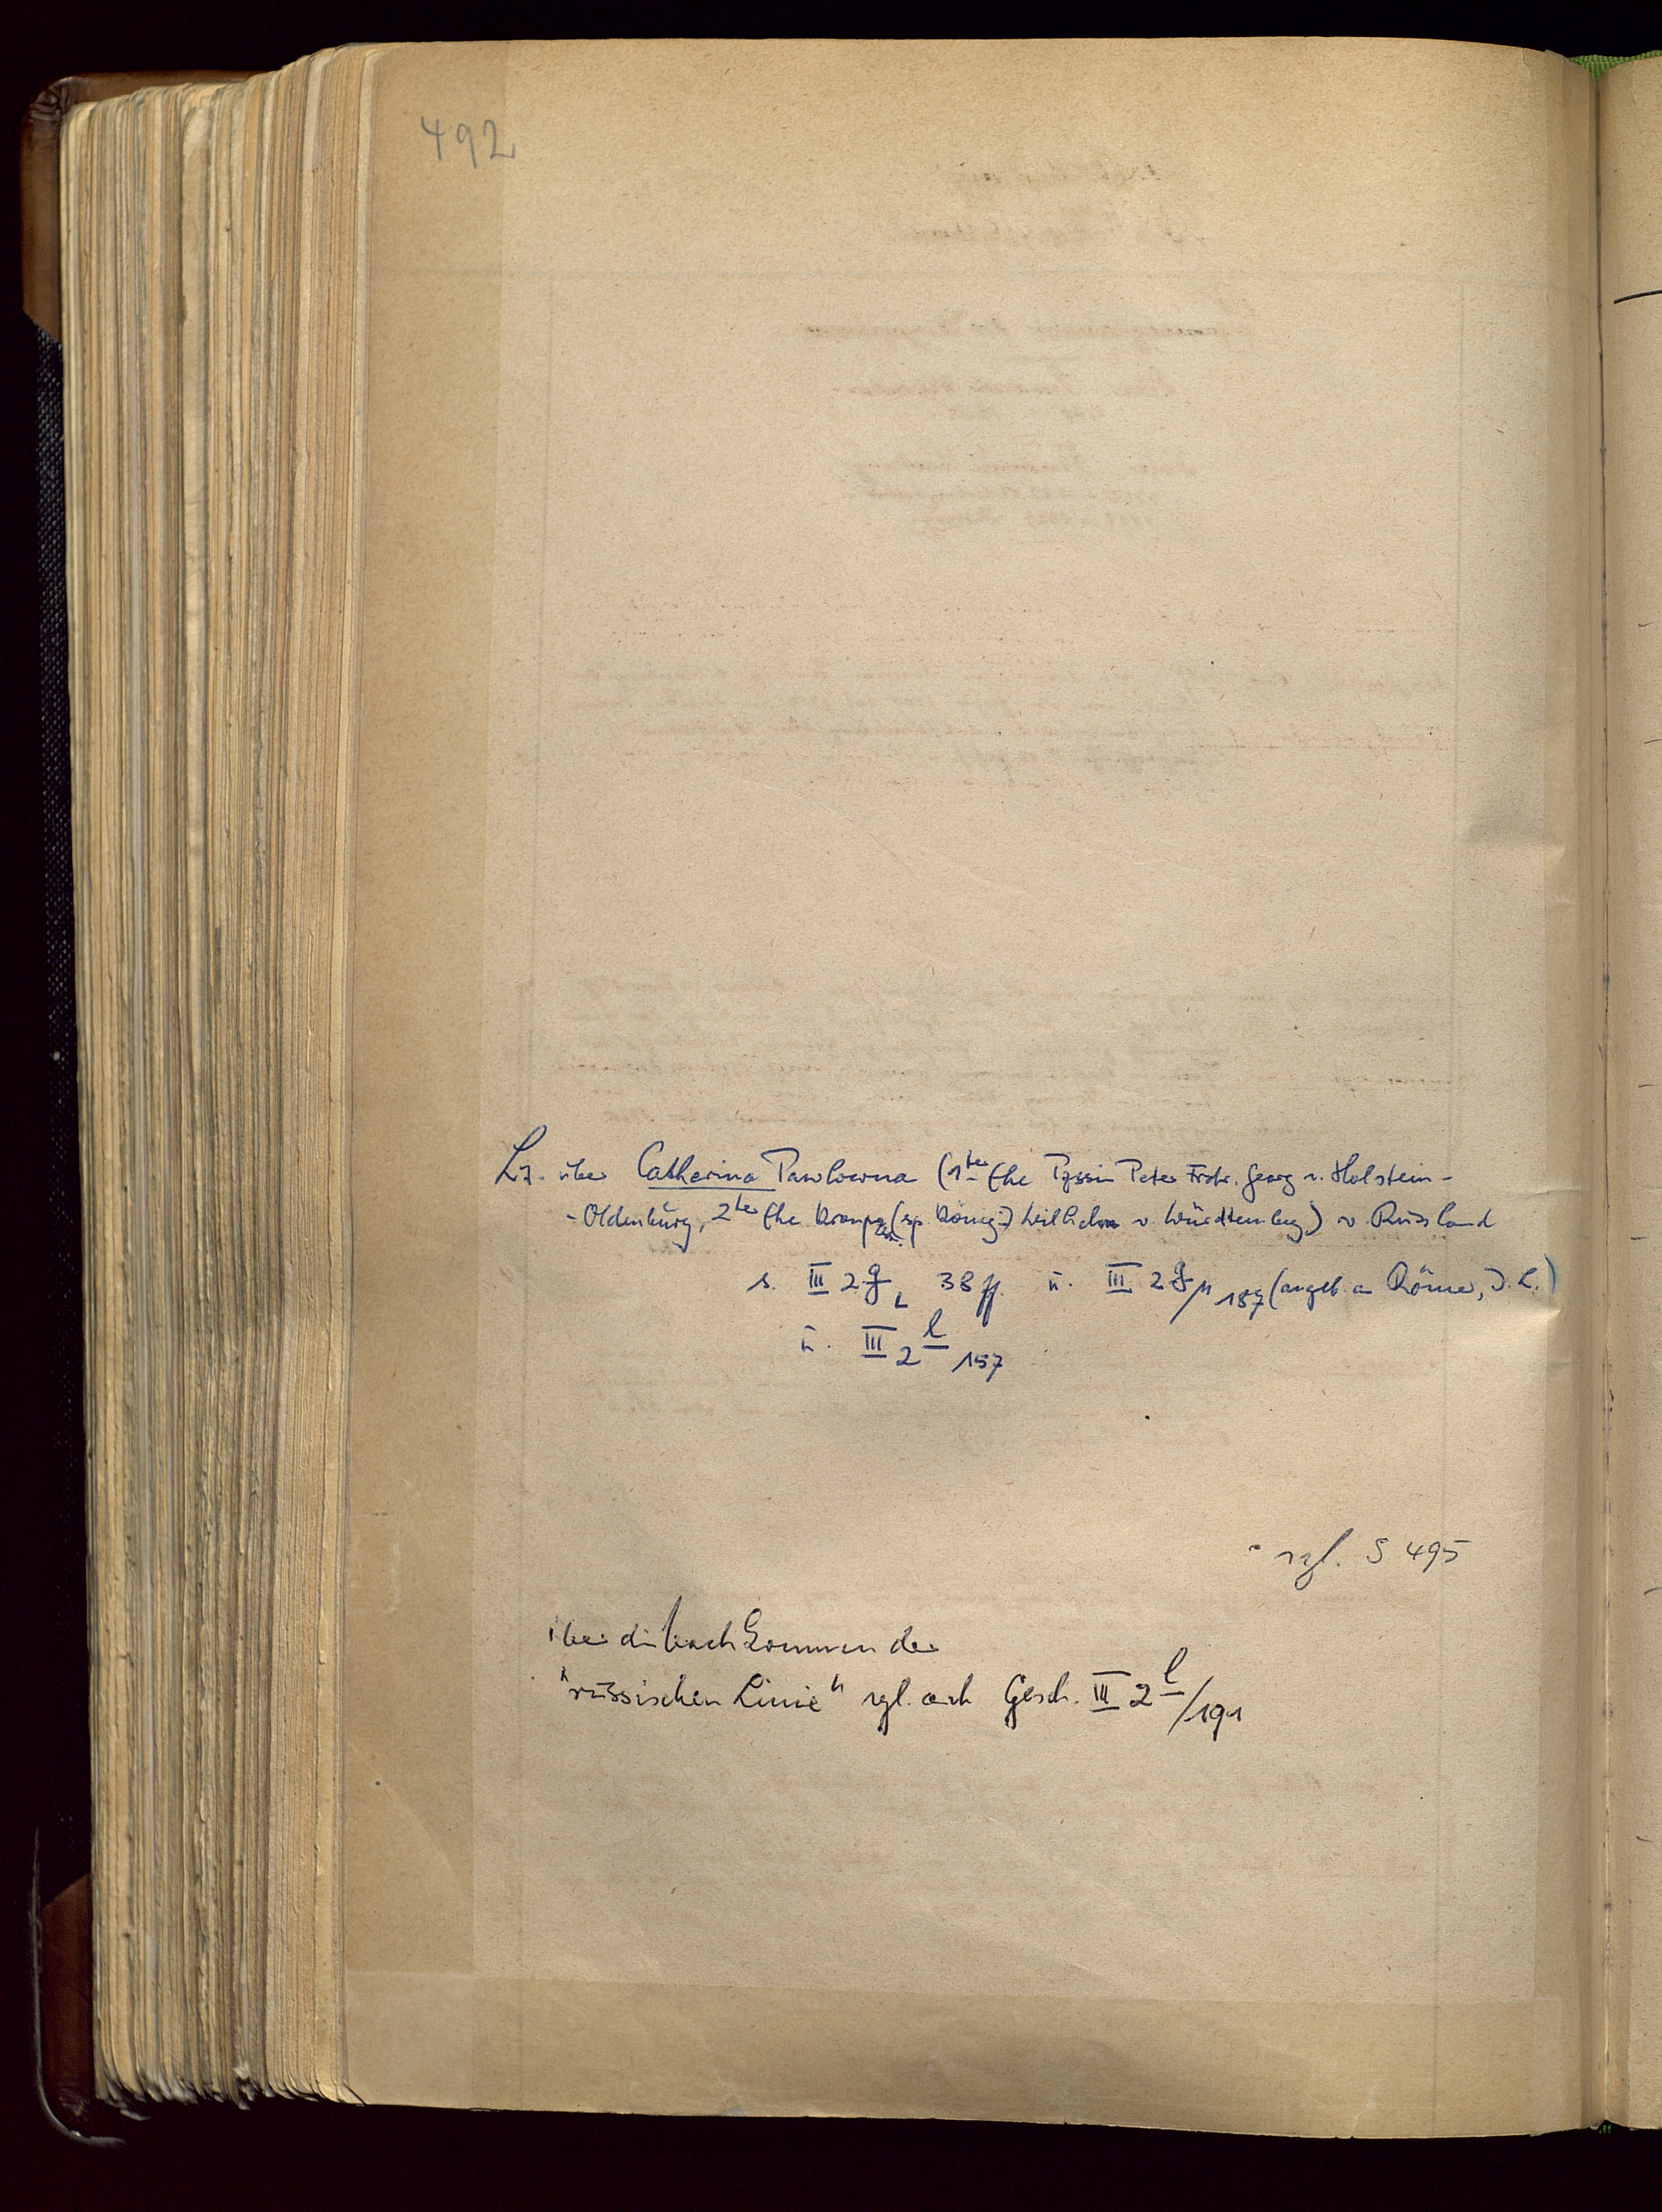 492
Lit. über Catherina Pawlowna (1te Ehe Pzssin Peter Frdr. Georg v. Holstein-
-Oldenburg, 2te Ehe Kronpr (sp. König) Wilhelm v. Württemberg) v. Russland
s. III 2 g L 38 ff. u. III 2 g/M 187 (angeb. a Römer, J. L.)
u. III 2 l 157
vgl. S 495
über die Nachkommen der
"russischen Linie" vgl. auch Gesch. III 2 l/191